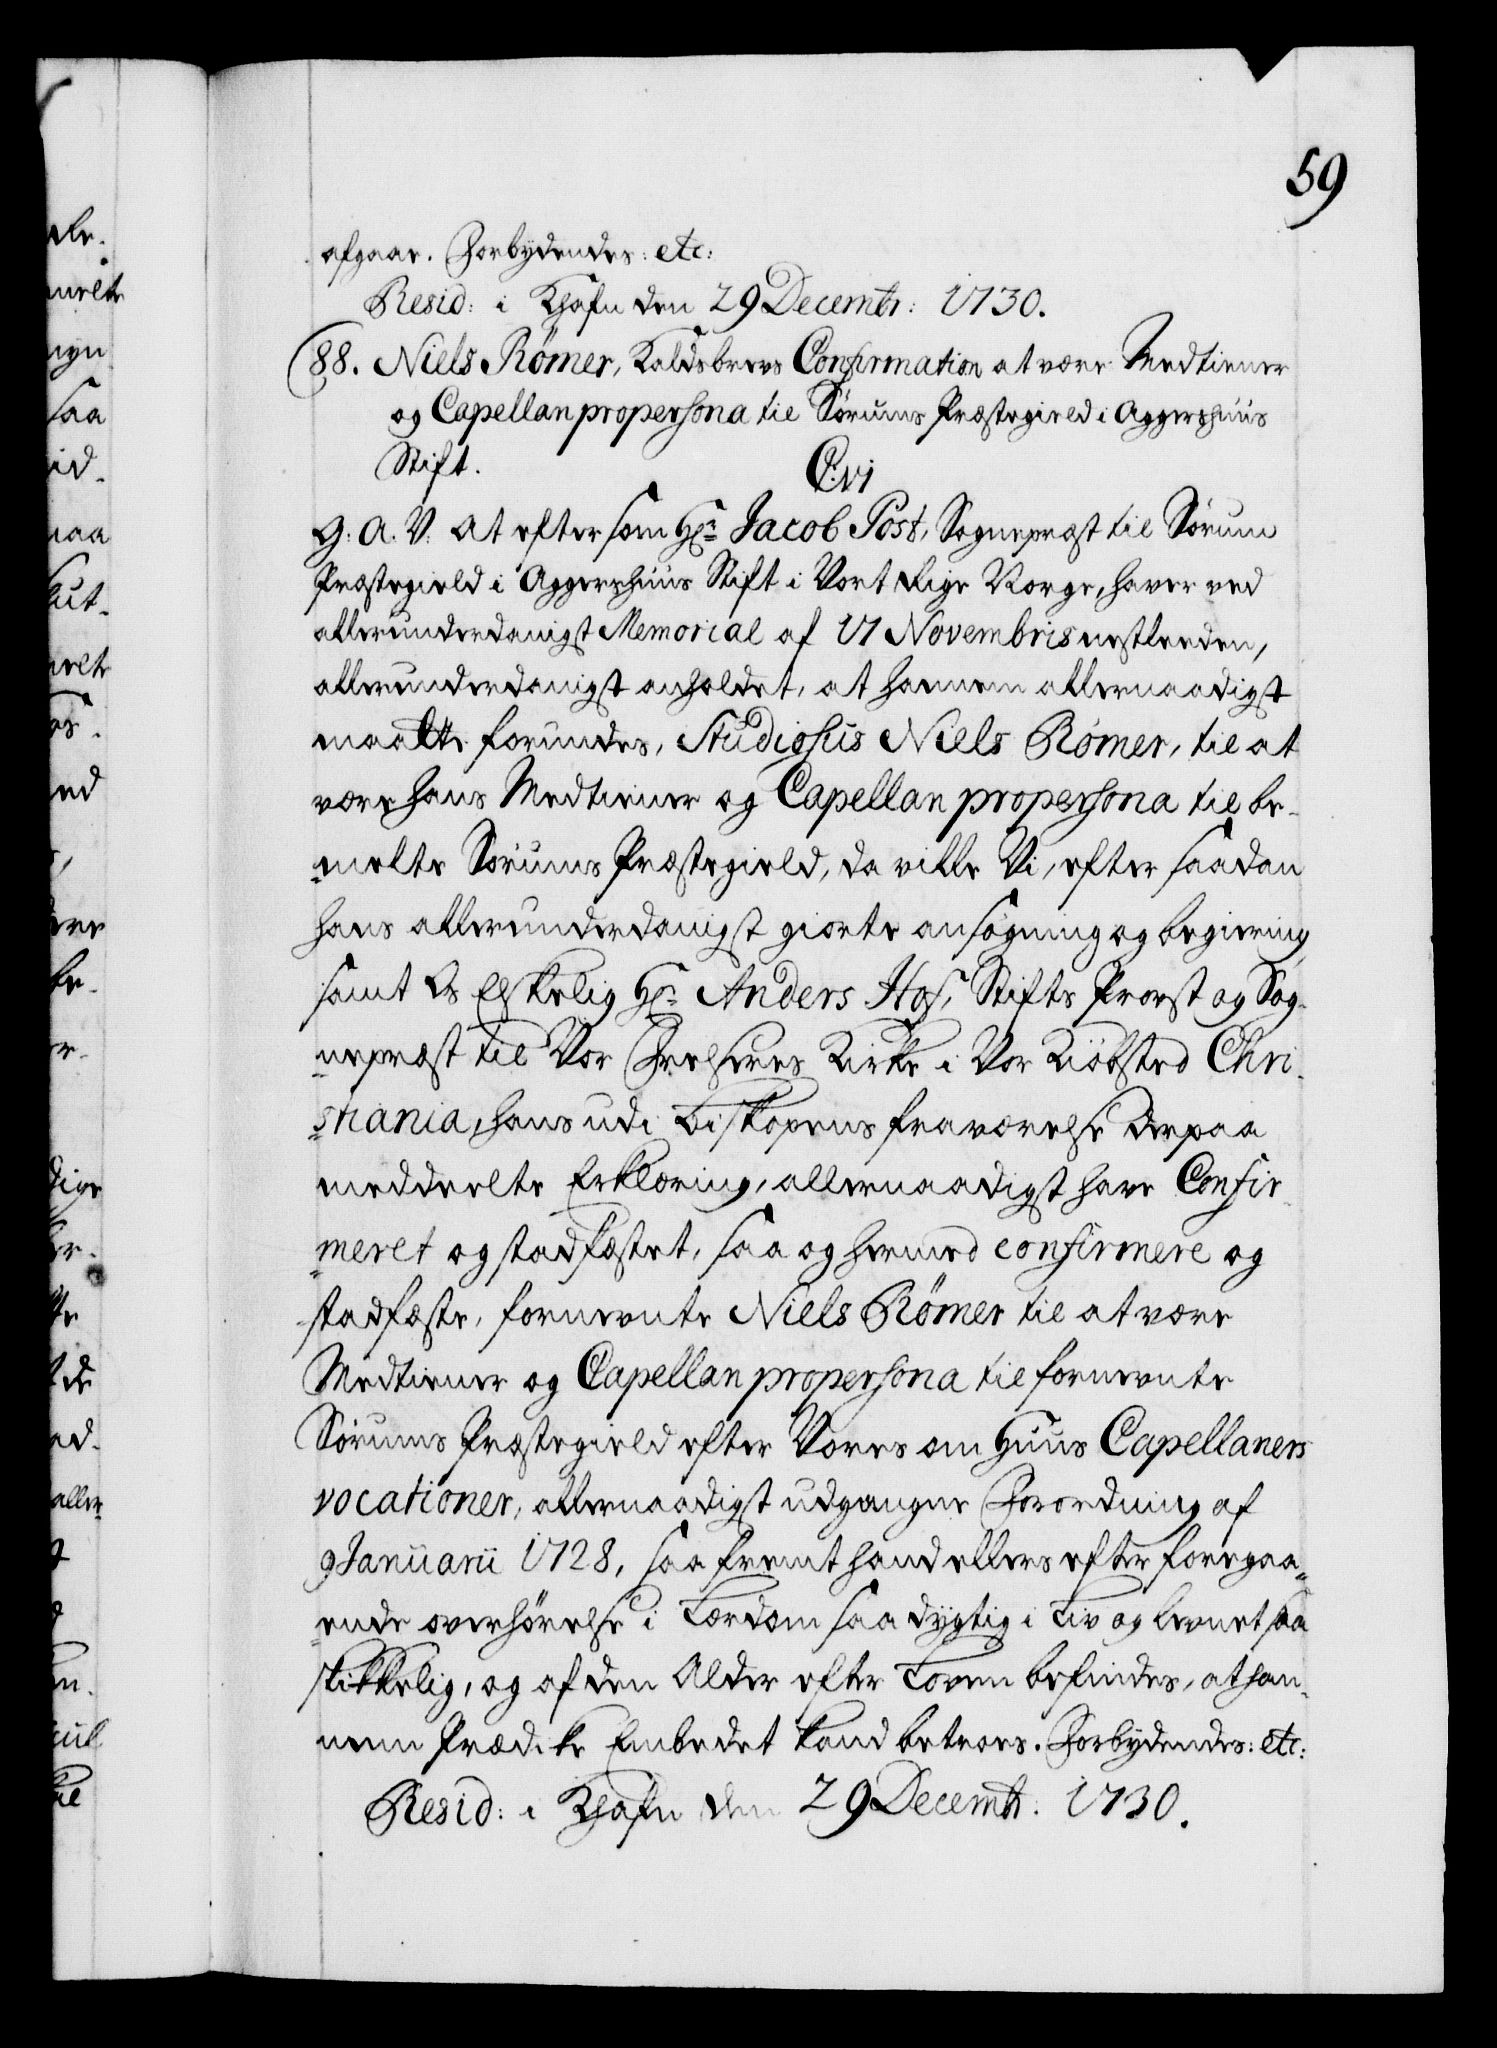 59
afgaar. Forbydendes: etc:
Resid: i Khafn den 29 Decembr: 1730.
88. Niels Römer, Kaldsbrevs Confirmation at være Medtiener
og Capellan propersona til Sørums Præstegield i Aggershuus
Stift.
C. vi
G. A. V. At eftersom Hr. Jacob Post, Sognepræst til Sørum
Præstegield i Aggershuus Stift i Vort Rige Norge, haver ved
allerunderdanigst Memorial af 17 Novembris nestleeden,
allerunderdanigst anholdet, at hannem allernaadigst
maatte forundes, Studiosus Niels Römer, til at
være hans Medtiener og Capellan propersona til be-
melte Sørums Præstegield, da ville Vi, efter saadan
hans allerunderdanigst giorte ansøgning og begiering
samt Os Elskelig Hr. Anders Hof, Stifts Provst og Sog-
nepræst til Vor Frelseres Kirke i Vor Kiøbsted Chri-
stiania, hans udi Biskopens fraværelse derpaa
meddeelte Erklæring, allernaadigst have Confir-
meret og stadfæstet, saa og hermed confirmere og
stadfæste, fornevnte Niels Römer til at være
Medtiener og Capellan propersona til fornevnte
Sørums Præstegield efter Vores om Huus Capellaners
vocationer, allernaadigst udgangne Forordning af
9 Januarii 1728, saafremt hand ellers efter foregaa-
ende overhørelse i Lærdom saa dygtig i Liv og levnet saa
skikkelig, og af den Alder efter Loven befindes, at han-
nem Prædike Embedet kand betroes. Forbydendes: etc:
Resid: i Khafn den 29 Decembr: 1730.